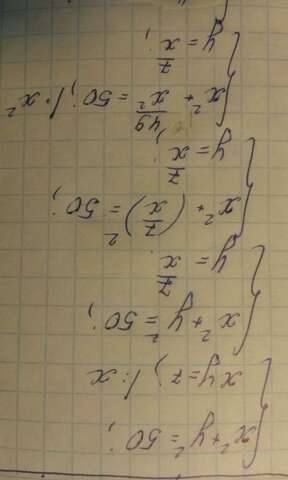 x² + y² = 50;
xy = 7; |: x
x² + y² = 50;
y = 7/x
x² + (7/x)² = 50;
y = 7/x;
x² + 49/x² = 50; |· x²
y = 7/x;